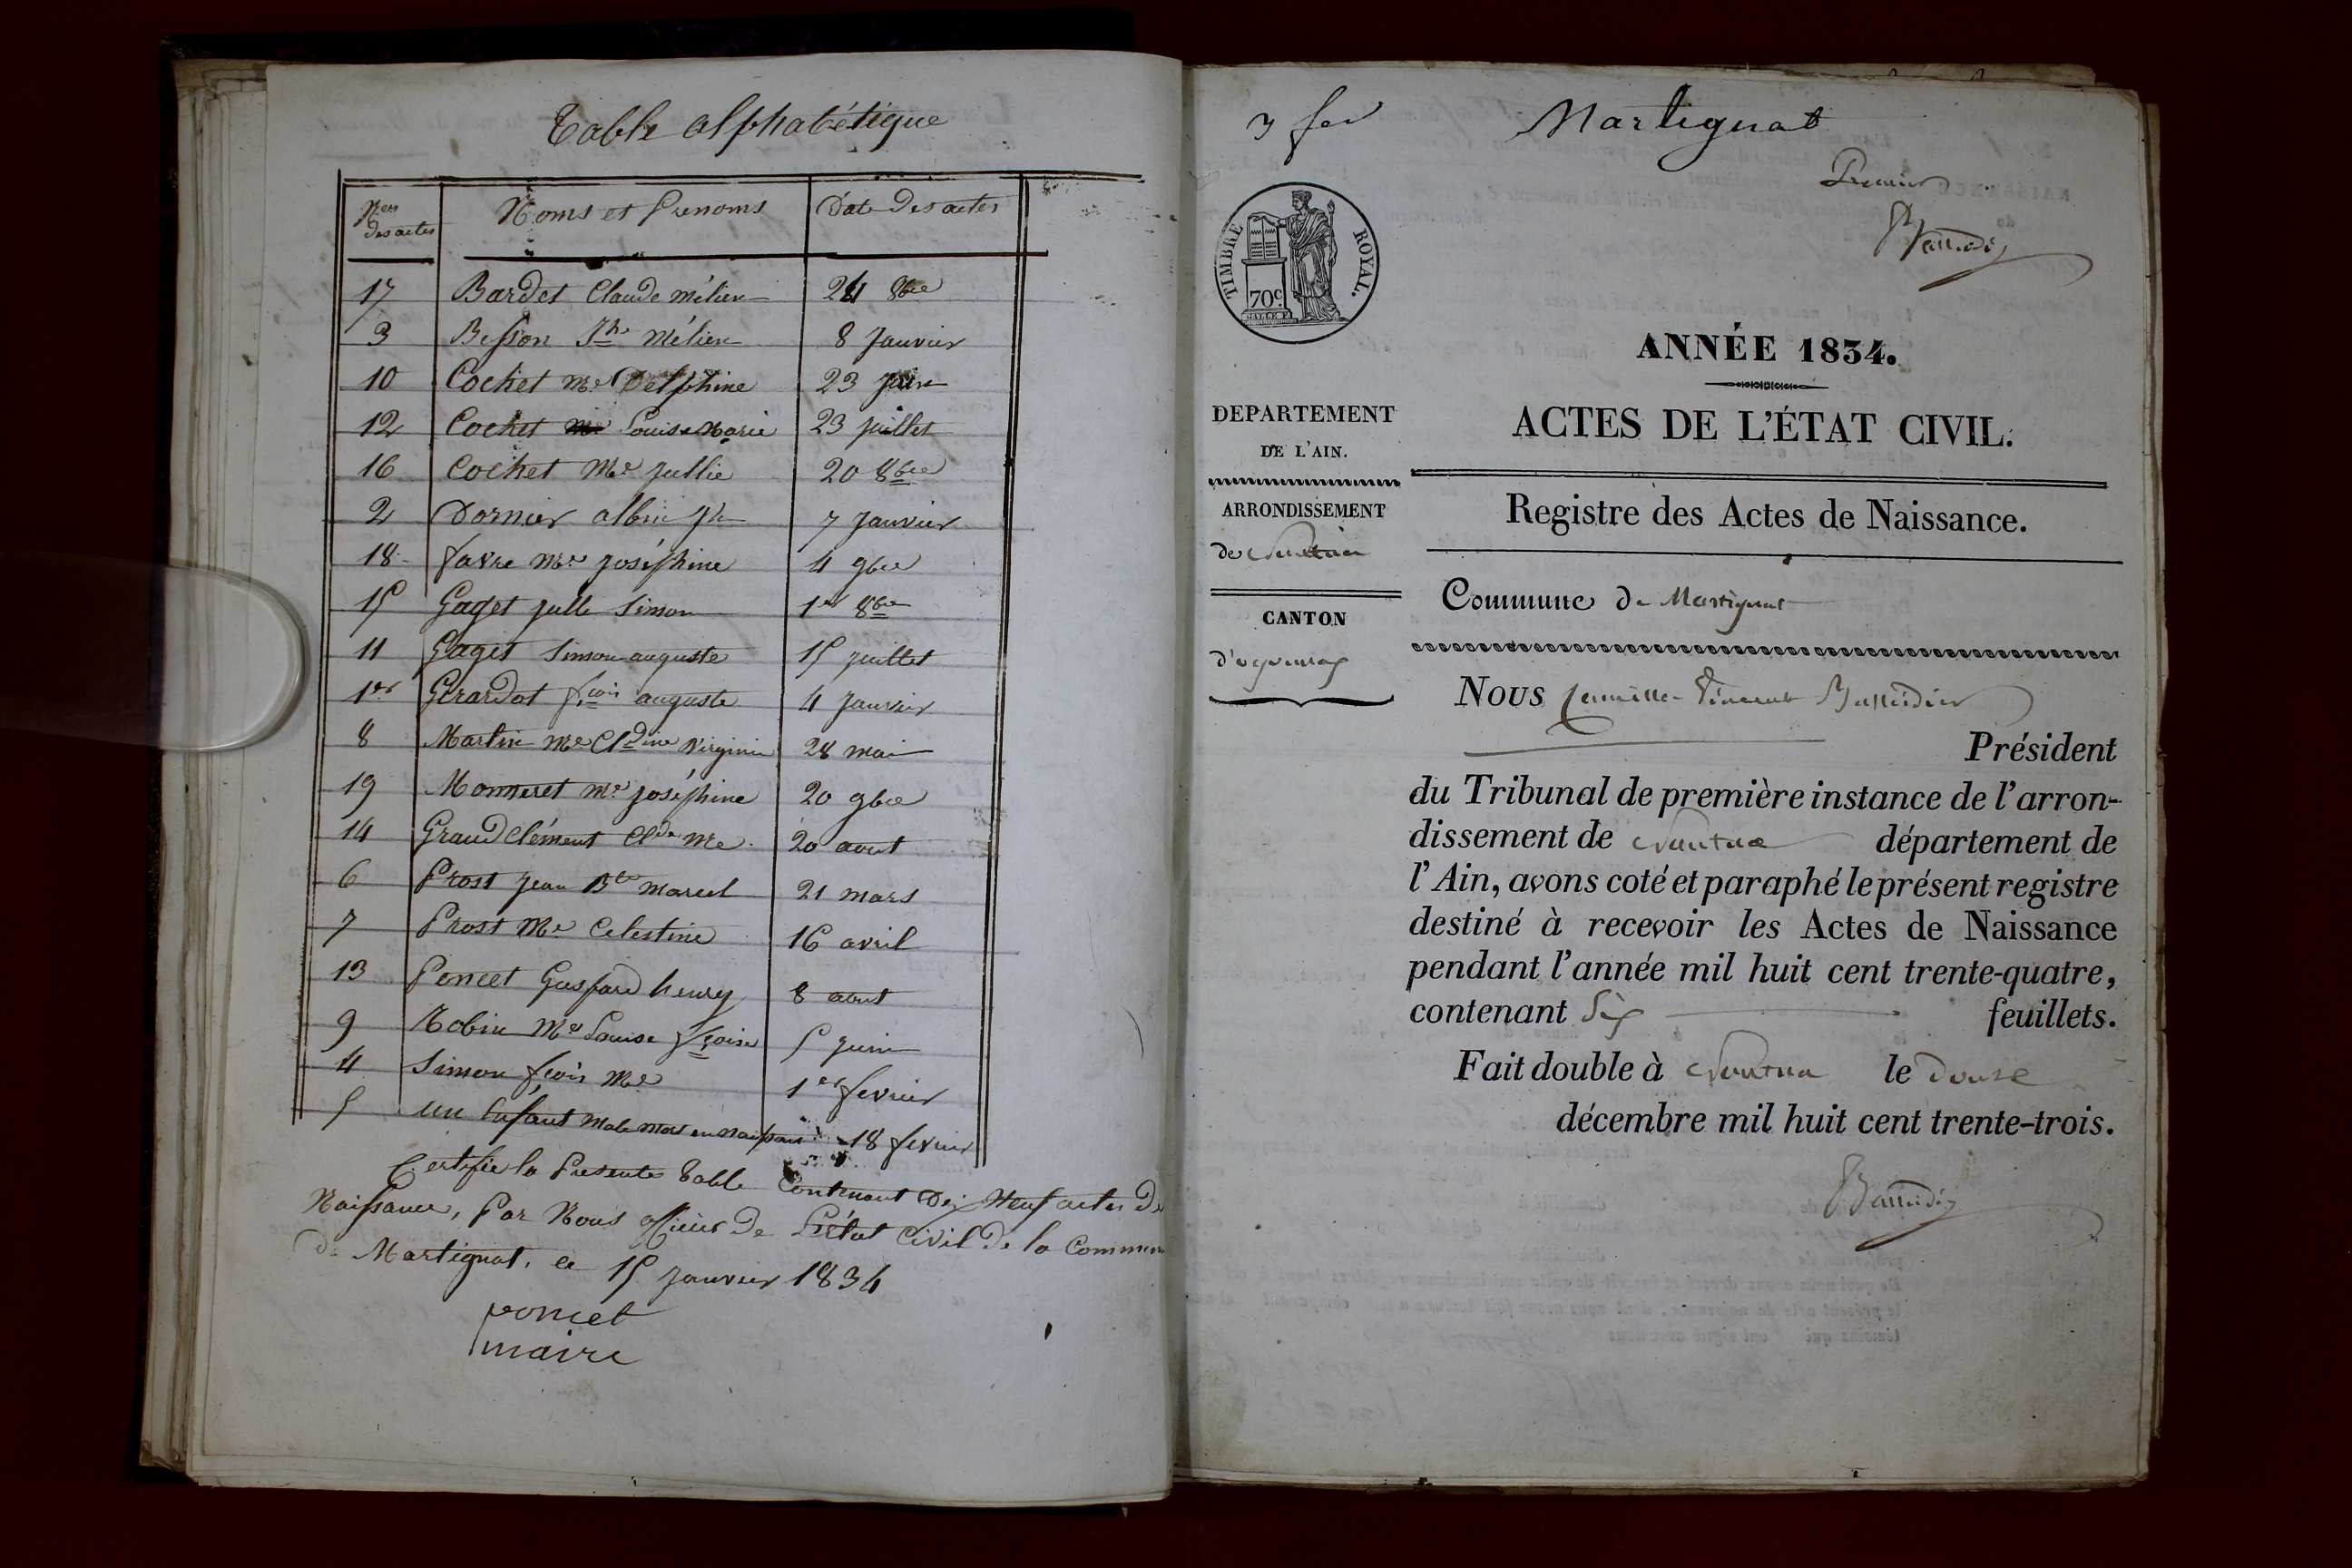 Table alphabétique
Nos des actes Noms et Prenoms Date des actes
17 Bardet Claude mélien 24 8bre
3 Besson Jh mélien 8 Janvier
10 Cochet Me Delphine 23 juin
12 Cochet Louise Marie 23 juillet
16 Cochet Me jullie 20 8bre
2 Dornier albin jh 7 Janvier
18 favre Me joséphine 4 9bre
15 Gaget julle Simon 1er 8bre
11 Gaget Simon auguste 15 juillet
1er Girardot fcois auguste 4 Janvier
8 Martin Me Cldine virginie 28 mai
19 Monneret Me joséphine 20 9bre
14 Grand Clément Clde Me 20 aout
6 Prost jean Bte marcel 21 mars
7 Prost Me Celestine 16 avril
13 Poncet Gaspard henry 8 aout
9 Robin Me Louise fcoise 5 juin
4 Simon fcois Me 1er fevrier
5 un Enfant Male mort en naissant 18 fevrier
Certifié la Presente Table Contenant Dix Neuf actes De
Naissance, Par Nous officier De L'état Civil De la Commune
De Martignat, ce 15 janvier 1834
poncet
maire
Martignat
Premier
TIMBRE ROYAL.
70c
ANNÉE 1834.
DEPARTEMENT
DE L'AIN.
ACTES DE L'ÉTAT CIVIL.
ARRONDISSEMENT
de Nantua
Registre des Actes de Naissance.
CANTON
d'oyonnax
Commune de Martignat
Nous Camille Vincent
Président
du Tribunal de première instance de l'arron-
dissement de Nantua département de
l'Ain, avons coté et paraphé le présent registre
destiné à recevoir les Actes de Naissance
pendant l'année mil huit cent trente-quatre,
contenant Six feuillets.
Fait double à Nantua le douze
décembre mil huit cent trente-trois.